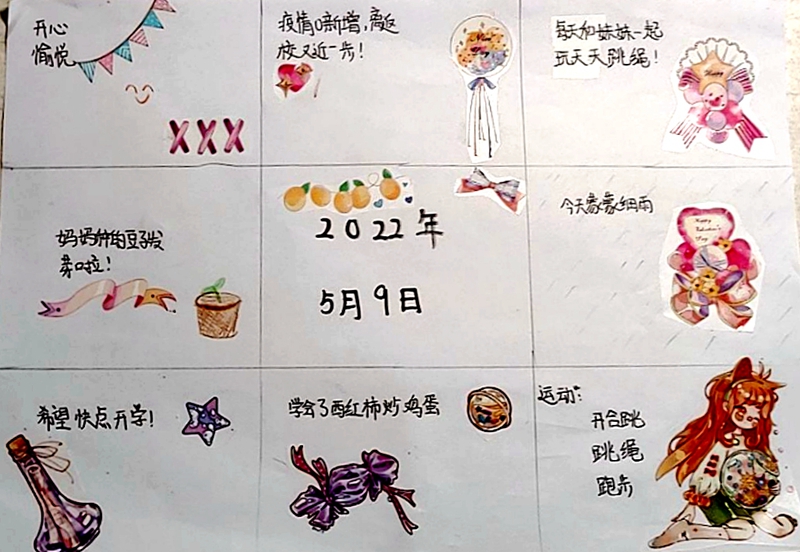 开心
愉悦
XXX
疫情0新增,离返
校又近一步!
每天和妹妹一起
玩天天跳绳!
Happy
妈妈种的豆子发
芽啦!
2022年
5月9日
今天濛濛细雨
Happy
Valentine's
Day
希望快点开学!
学会了西红柿炒鸡蛋
运动:
开合跳
跳绳
跑步